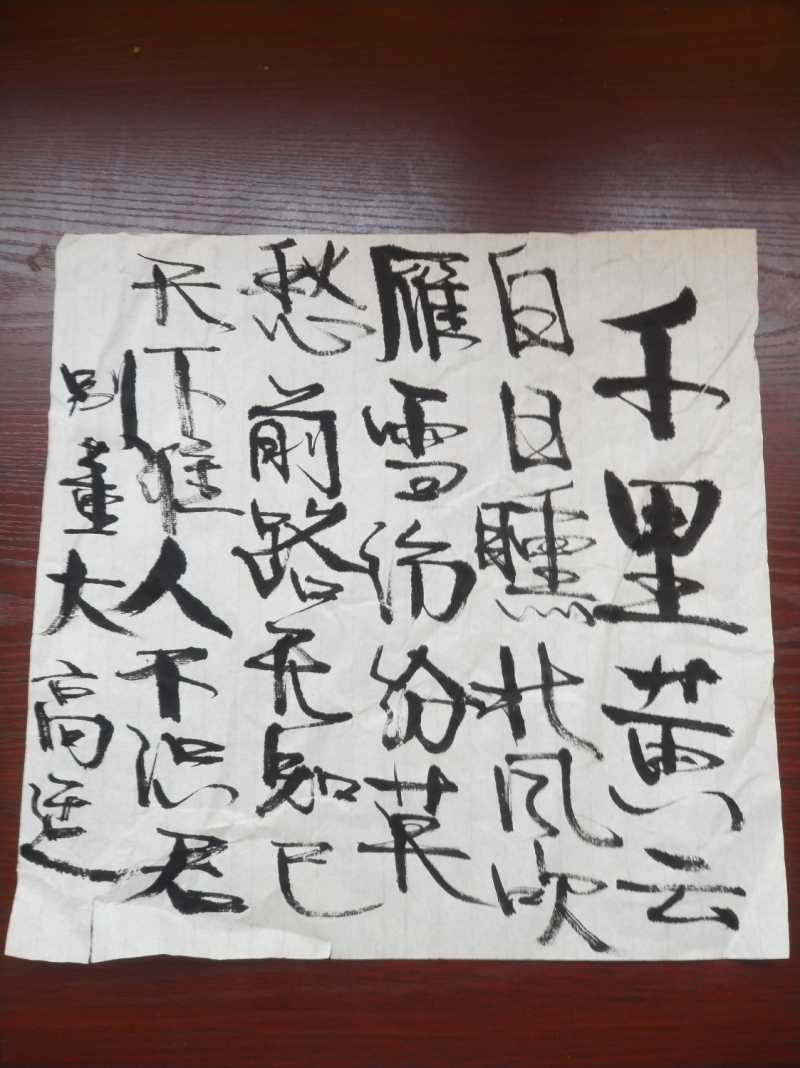 千里黄云
白日曛北风吹
雁雪纷纷莫
愁前路无知己
天下谁人不识君
别董大高适